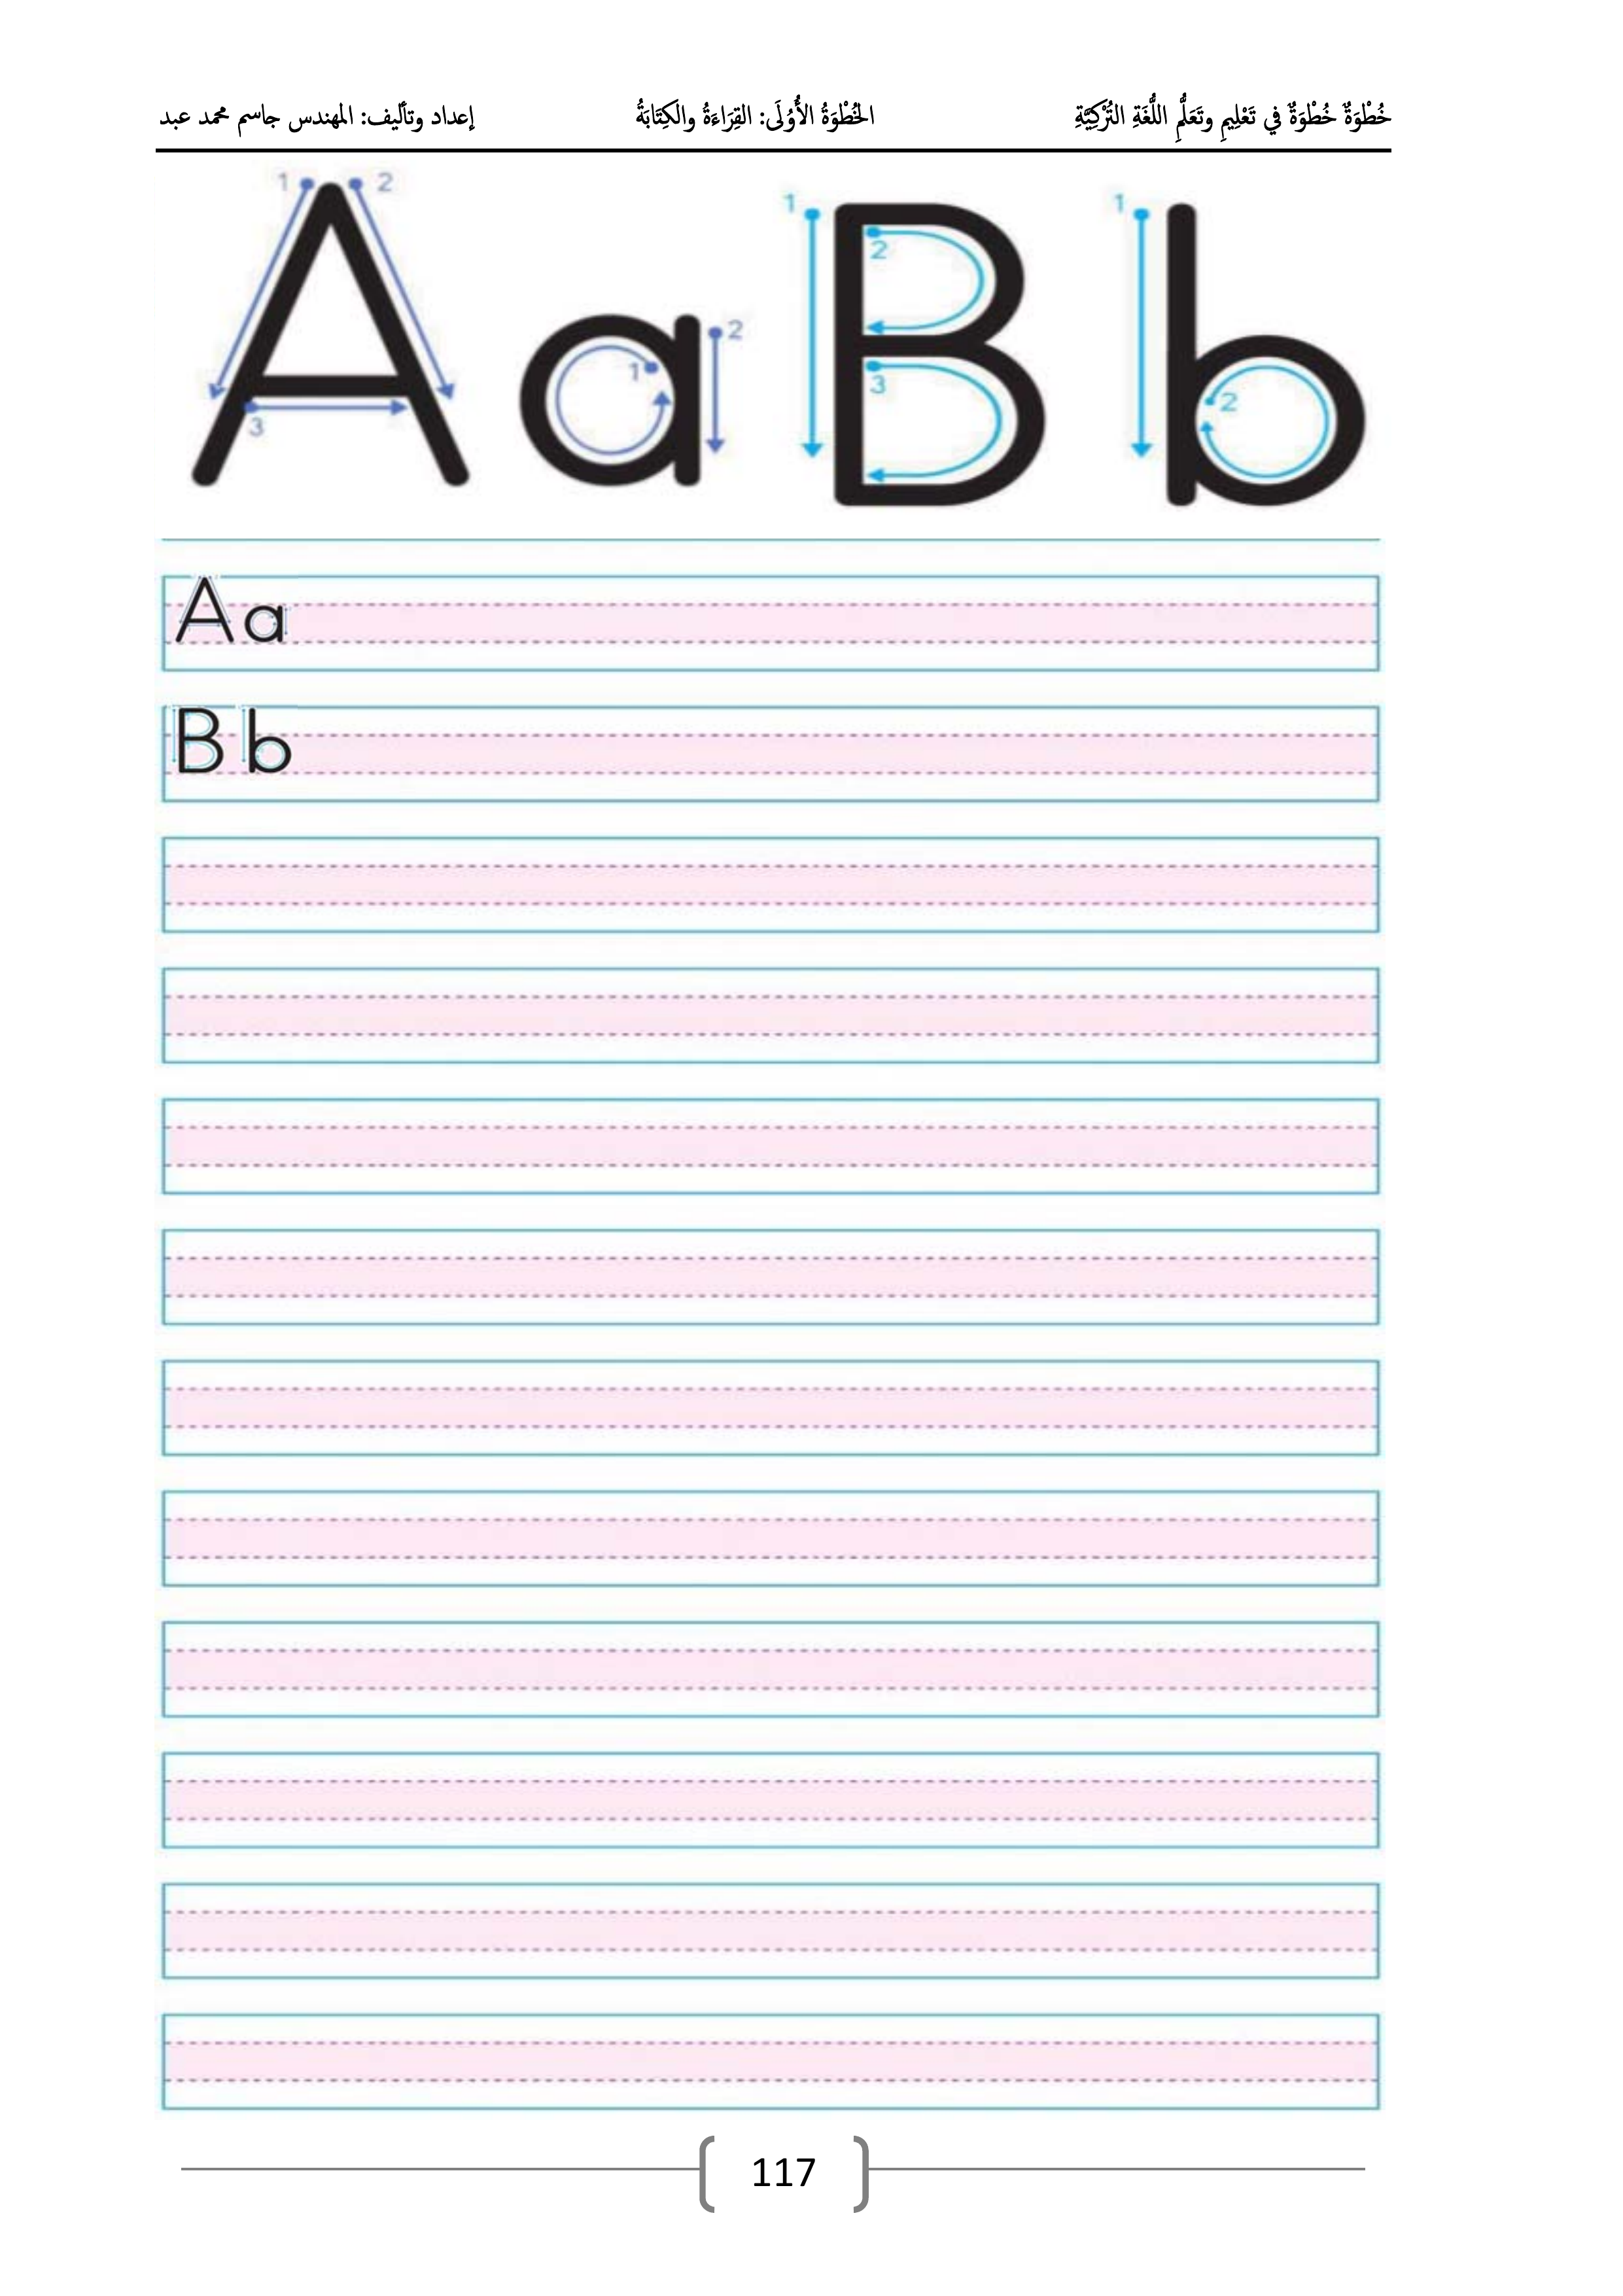 خُطْوَةٌ خُطْوَةٌ في تَعْلِيمِ وتَعَلُّمِ اللُّغَةِ التُّرْكِيَّةِ الخُطْوَةُ الأُوْلَى: القِرَاءَةُ والكِتَابَةُ إعداد وتأليف: المهندس جاسم محمد عبد
1 2 3 1 2 1 2 3 1 2
A a B b
A a
B b
117